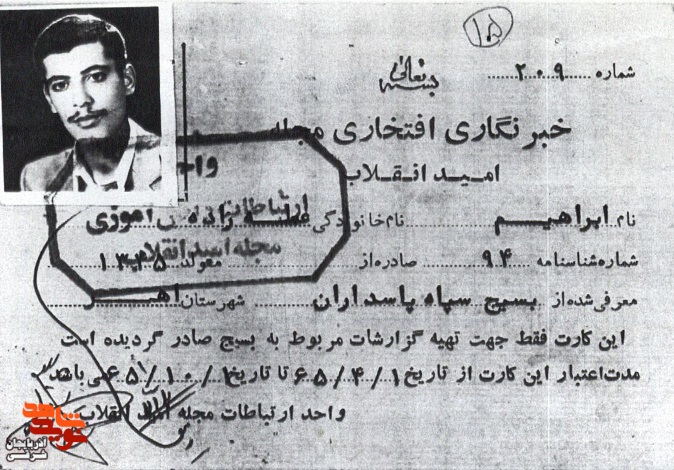 ۱۵
بسمه تعالی
شماره ۲۰۹
خبرنگاری افتخاری مجله
امید انقلاب
نام ابراهیم نام خانوادگی زاده
شماره شناسنامه ۹۴ صادره از متولد ۱۳۴۵
معرفی شده از بسیج سپاه پاسداران شهرستان اهر
این کارت فقط جهت تهیه گزارشات مربوط به بسیج صادر گردیده است
مدت اعتبار این کارت از تاریخ ۶۵/۴/۱ تا تاریخ ۶۵/۱۰/۱ می باشد
واحد ارتباطات مجله امید انقلاب
ارتباطات
مجله امید انقلاب
نوید شاهد
آذربایجان شرقی